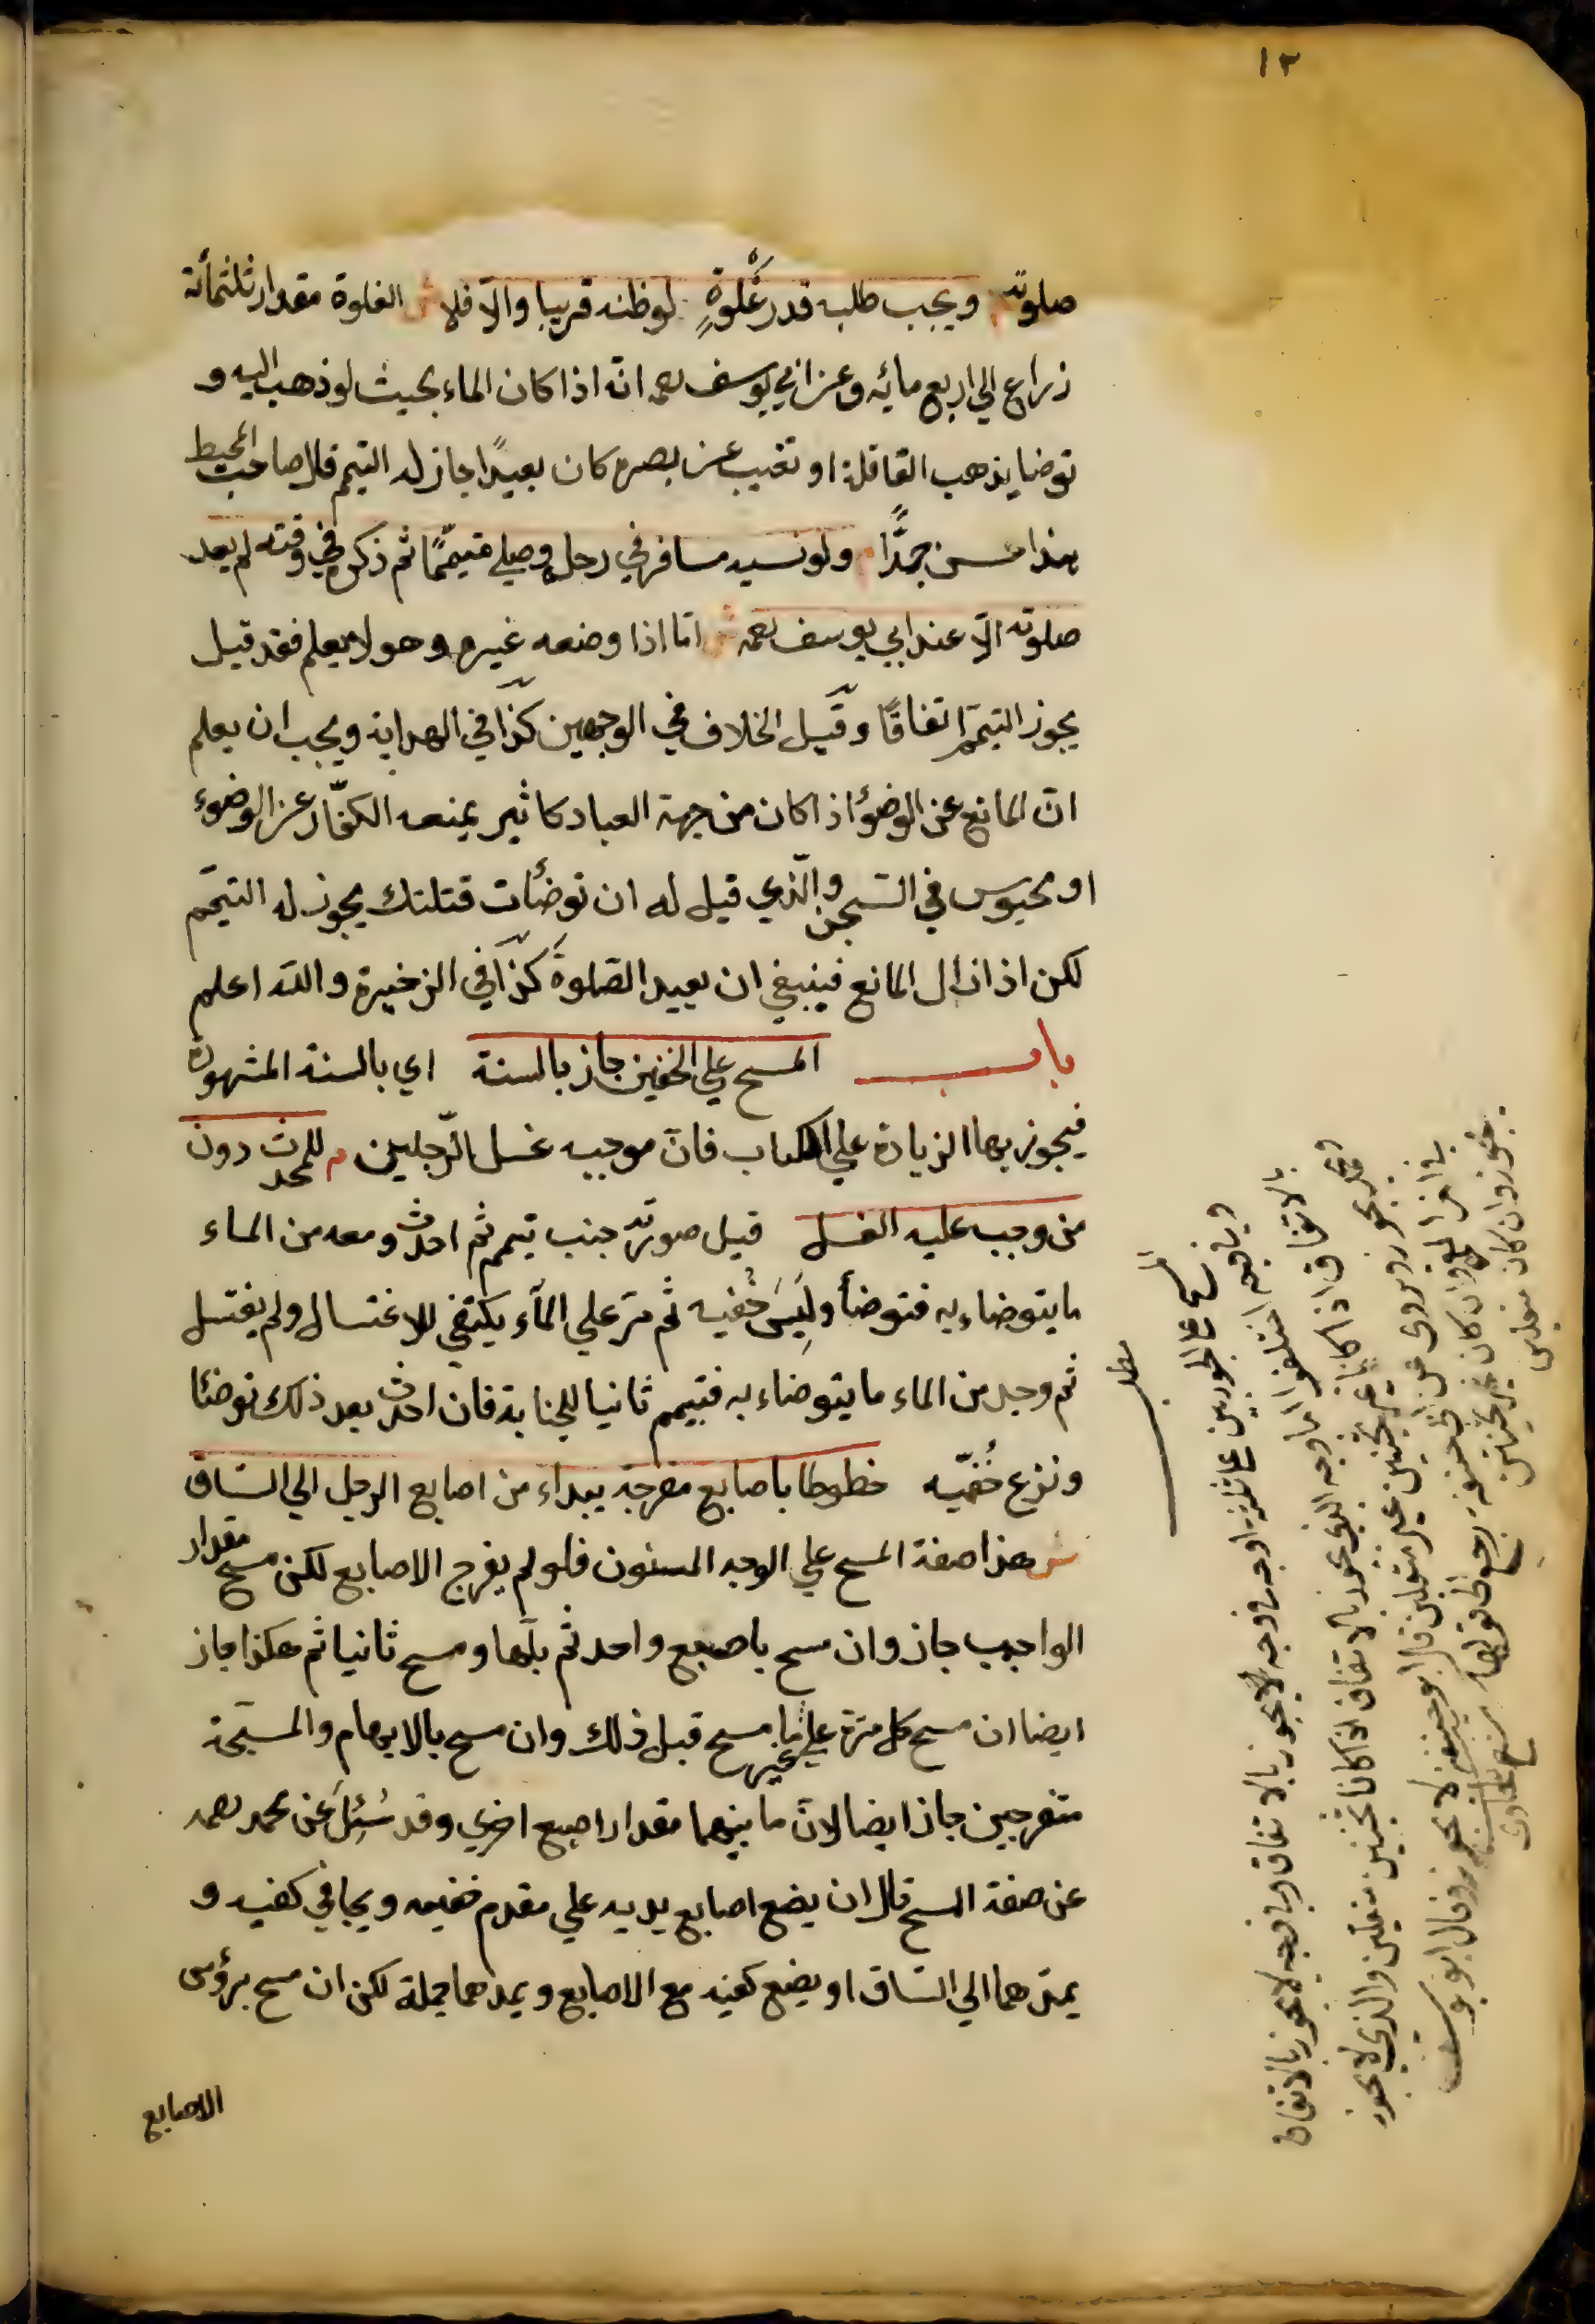 ١٢
صلوته م ويجب طلبه قدر غلوةٍ لو ظنه قريبا والّا فلا ش الغلوة مقدار ثلثمأئة
زراع الي اربع مائه وعن ابي يوسف رحمه انّه اذا كان الماء بحيث لو ذهب اليه و
توضا يذهب القافلة او تغيب عن بصره كان بعيدًا جاز له التيمم قال صاحب المحيط
هذا حسن جدًّا م ولو نسيه مسافر في رحله وصلي متيمّمًا ثم ذكره في وقته لم يعد
صلوته الّا عند ابي يوسف رحمه ش امّا اذا وضعه غيره وهو لا يعلم فقد قيل
يجوز التيمم اتفاقًا وقيل الخلاف في الوجهين كذا في الهداية ويجب ان يعلم
انّ المانع عن الوضؤ اذا كان من جهة العباد كاثير يمنعه الكفّار عن الوضوء
او محبوس في السّجن والّذي قيل له ان توضأت قتلتك يجوز له التيمّم
لكن اذا زال المانع فينبغي ان يعيد الصّلوةَ كذا في الزخيرة والله اعلم
باب المسح علي الخفين جاز بالسنة اي بالسنة المشهورة
فيجوز بها الزيادة علي الكتاب فانّ موجبه غسل الرّجلين م للمحدث دون
من وجب عليه الغسل قيل صورته جنب تيمم ثم احدث ومعه من الماء
ما يتوضاء به فتوضأ ولَبِسَ خُفيه ثم مرّ علي المآء يكتفي للاغتسال ولم يغتسل
ثم وجد من الماء ما يتوضاء به فتيمم ثانيا للجنابة فان احدث بعد ذلك توضئا
ونزع خُفّيه خطوطا باصابع مفرجة يبداء من اصابع الرجل الي السّاق
ش هذا صفة المسح علي الوجه المسنون فلو لم يفرج الاصابع لكن مسح مقدار
الواجب جاز وان مسح باصبع واحد ثم بلّها ومسح ثانيا ثم هكذا جاز
ايضا ان مسح كل مرّة علي غير ما مسح قبل ذلك وان مسح بالابهام والمسبّحة
متفرجين جاز ايضا لانّ ما بينهما مقدار اصبع اخري وقد سُئِلَ عن محمد رحمه
عن صفة المسح قال ان يضع اصابع يديه علي مقدم خفيه ويجافي كفيه و
يمدّهما الي السّاق او يضع كفيه مع الاصابع ويمدهما جملة لكن ان مسح برؤس
الاصابع
مطلب
المسح على الجوربين على ثلثة اوجه في وجه لا يجوز بالاتفاق وفي وجه يجوز بالاتفاق
بالاتفاق اذا كانا غير ثخينين غير منعلين